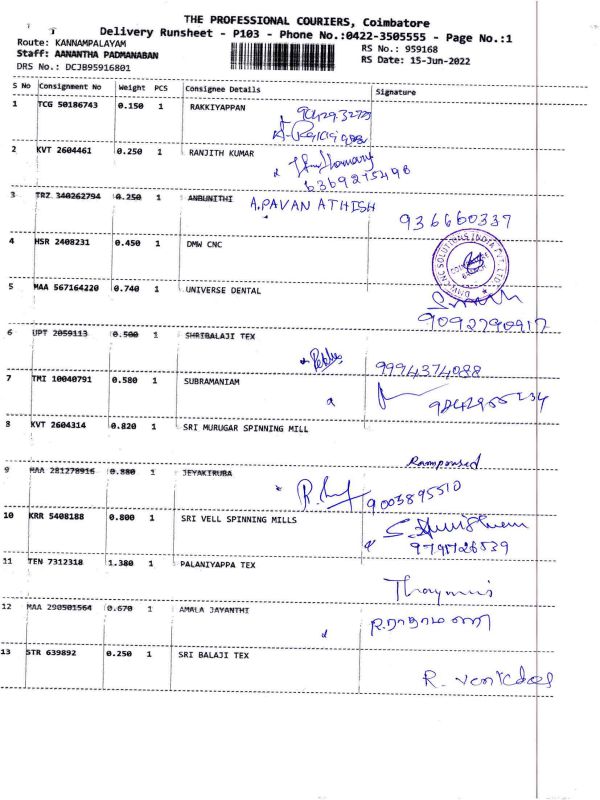 THE PROFESSIONAL COURIERS, Coimbatore
Delivery Runsheet - P103 - Phone No.:0422-3505555 - Page No.:1
Route: KANNAMPALAYAM RS No.: 959168
Staff: AANANTHA PADMANABAN RS Date: 15-Jun-2022
DRS No.: DCJB95916801
S No Consignment No Weight PCS Consignee Details Signature
1 TCG 50186743 0.150 1 RAKKIYAPPAN
2 KVT 2604461 0.250 1 RANJITH KUMAR
6369215498
3 TRZ 340262794 0.250 1 ANBUNITHI A.PAVAN ATHISH
936660337
4 HSR 2408231 0.450 1 DMW CNC
5 MAA 567164220 0.740 1 UNIVERSE DENTAL
9092790917
6 UPT 2059113 0.500 1 SHRIBALAJI TEX
9994374088
7 TMI 10040791 0.580 1 SUBRAMANIAM
8 KVT 2604314 0.820 1 SRI MURUGAR SPINNING MILL
9 MAA 281278916 0.880 1 JEYAKIRUBA
9003895510
10 KRR 5408188 0.800 1 SRI VELL SPINNING MILLS
11 TEN 7312318 1.380 1 PALANIYAPPA TEX
12 MAA 290501564 0.670 1 AMALA JAYANTHI
13 STR 639892 0.250 1 SRI BALAJI TEX